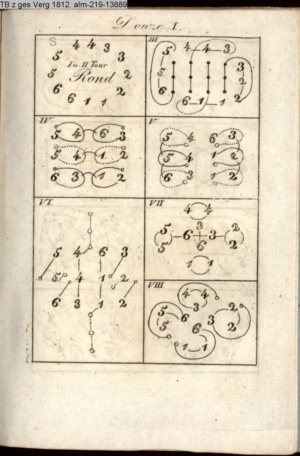 TB z ges Verg 1812. alm-219-13889
Douze I.
S
4 4 3
5 3
In. II Tour
5 2
Rond
6 2
6 1 1
III
5 4 4 3
5 3
6 2
6 1 1 2
IV
5 4 6 3
5 4 1 2
6 3 1 2
V
5 4 6 3
5 4 1 2
6 3 1 2
VI
5 4 6 3
5 4 1 2
6 3 1 2
VII
4 4
5 3 2
6 3
5 6 2
1 1
VIII
4 4
5 3 2
5 6 3 2
6
1 1